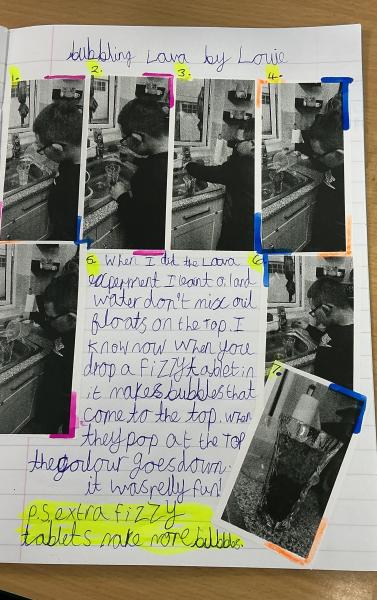 bubbling Lava by Louie
1.
2.
3.
4.
5.
6.
When I did the Lava
experment I leant oil and
water don't mix oil
floats on the top. I
know now when you
drop a fizzy tablet in
it makes bubbles that
come to the top. when
they pop at the top
the colour goes down.
it was relly fun!
7.
p.s extra fizzy
tablets make more bubbles.